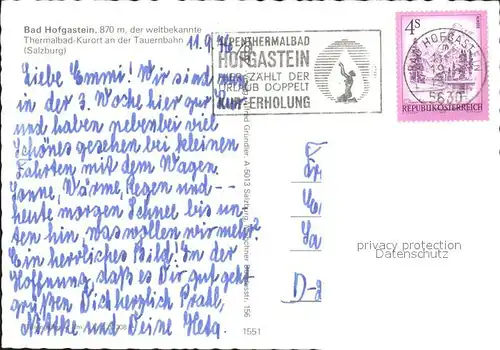 Bad Hofgastein, 870 m, der weltbekannte
Thermalbad-Kurort an der Tauernbahn
(Salzburg)
11.9.76
Liebe Emmi! Wir sind nun
in der 3. Woche hier zur Kur
und haben nebenbei viel
Schönes gesehen bei kleinen
Fahrten mit dem Wagen.
Sonne, Wärme, Regen und --
heute morgen Schnee bis un-
ten hin, was wollen wir mehr?
Ein herrliches Bild! In der
Hoffnung, daß es Dir gut geht
grüßen Dich herzlich
und Deine
ALPENTHERMALBAD
HOFGASTEIN
HIER ZÄHLT DER
URLAUB DOPPELT
KUR-ERHOLUNG
HOFGASTEIN
5630
4S
REPUBLIK ÖSTERREICH
Gründler, A-5013 Salzburg
156
1551
D-
privacy protection
Datenschutz